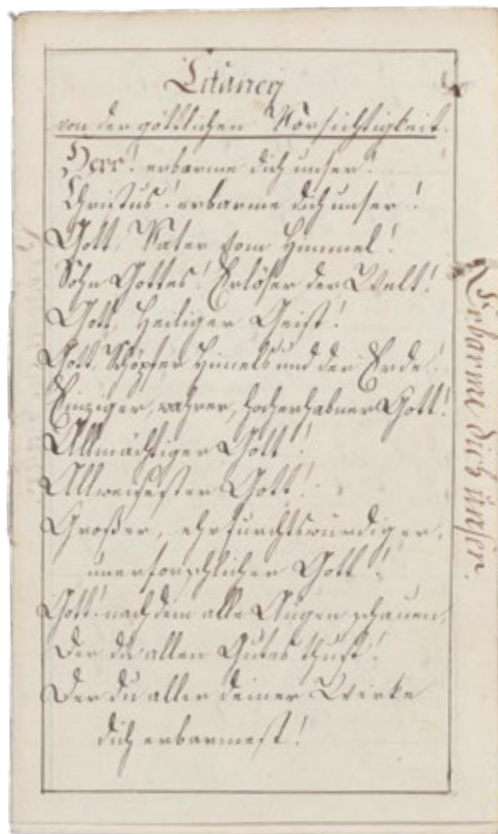 Litaney
von der göttlichen Vorsichtigkeit.
Herr! erbarme dich unser!
Christus! erbarme dich unser!
Gott Vater vom Himmel!
Sohn Gottes! Erlöser der Welt!
Gott, heiliger Geist!
Gott Schöpfer Himels und der Erde!
Einziger, wahrer, hocherhabner Gott!
Allmächtiger Gott!
Allweisester Gott!
Großer, ehrfurchtswürdiger,
unerforschlicher Gott!
Gott! nach dem alle Augen schauen,
Der du allen Gutes thust!
Der du aller deiner Werke
dich erbarmest!
Erbarme dich unser.